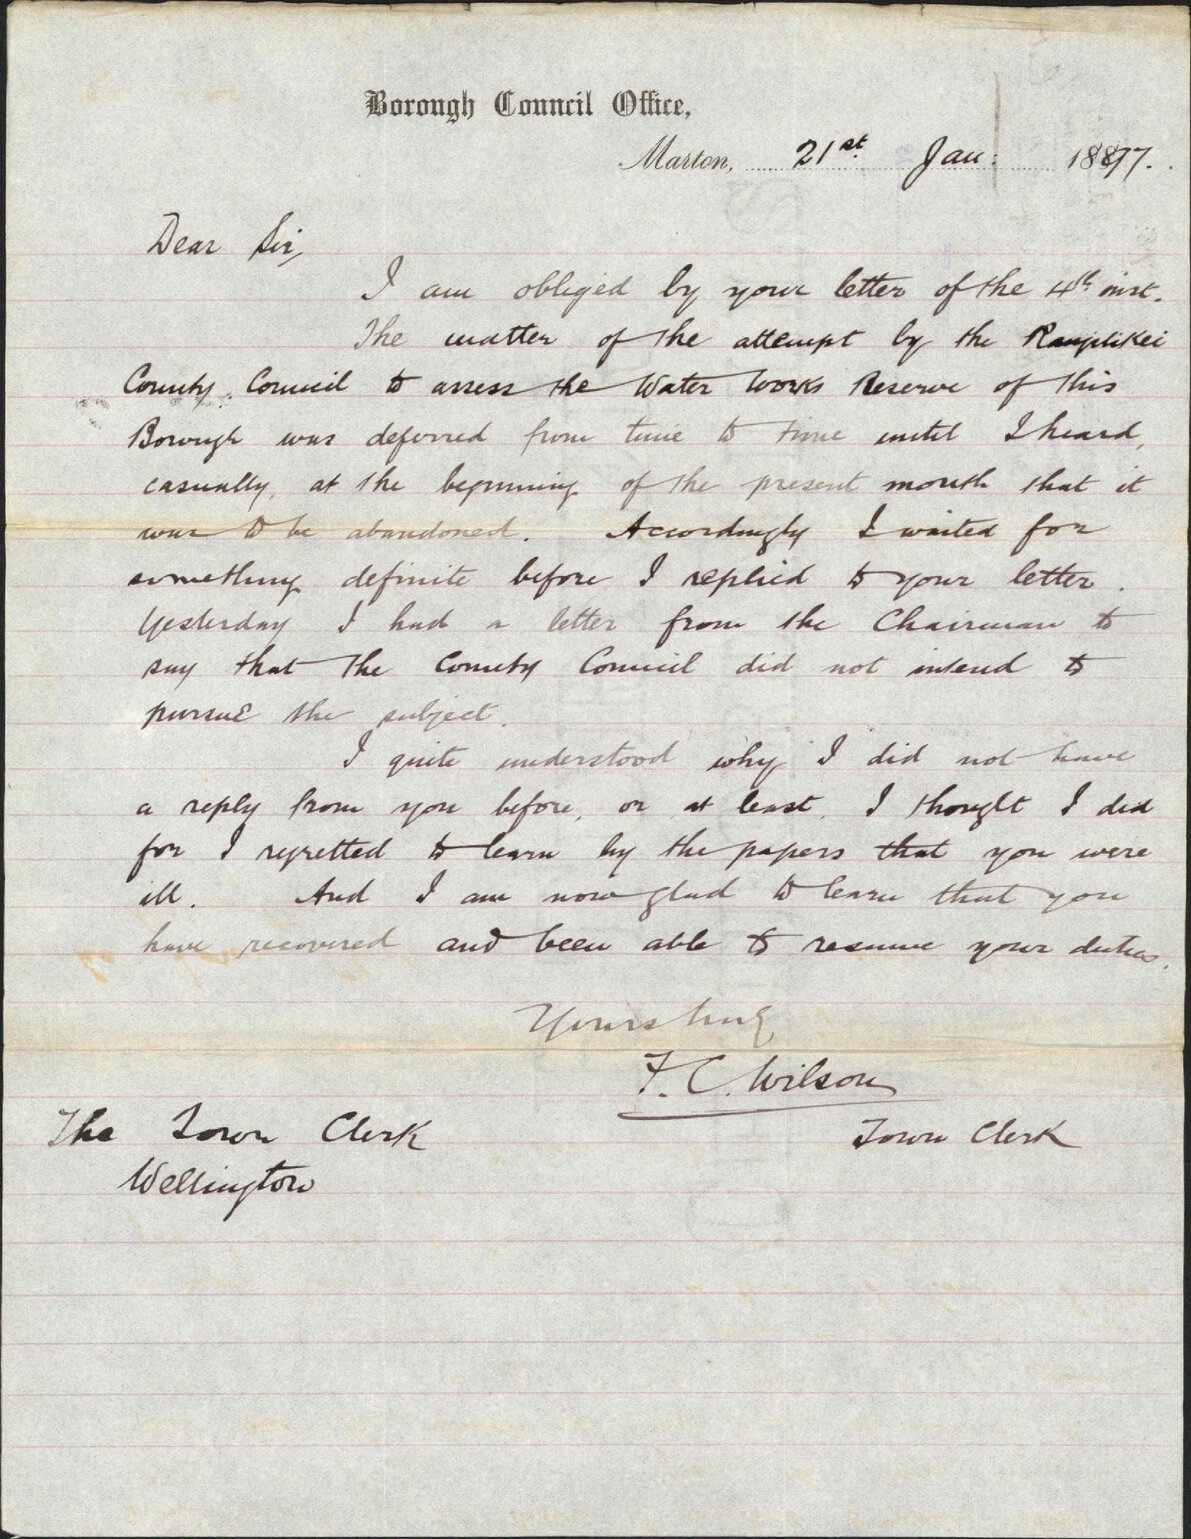 Borough Council Office,
Marton, 21st Jan: 1897.
Dear Sir,
I am obliged by your letter of the 4th inst.
The matter of the attempt by the Rangitikei
County Council to assess the Water Works Reserve of this
Borough was deferred from time to time until I heard,
casually, at the beginning of the present month that it
was to be abandoned. Accordingly I waited for
something definite before I replied to your letter.
Yesterday I had a letter from the Chairman to
say that the County Council did not intend to
pursue the subject.
I quite understood why I did not have
a reply from you before, or at least, I thought I did
for I regretted to learn by the papers that you were
ill. And I am now glad to learn that you
have recovered and been able to resume your duties.
Yours truly
F. C. Wilson
The Town Clerk
Town Clerk
Wellington